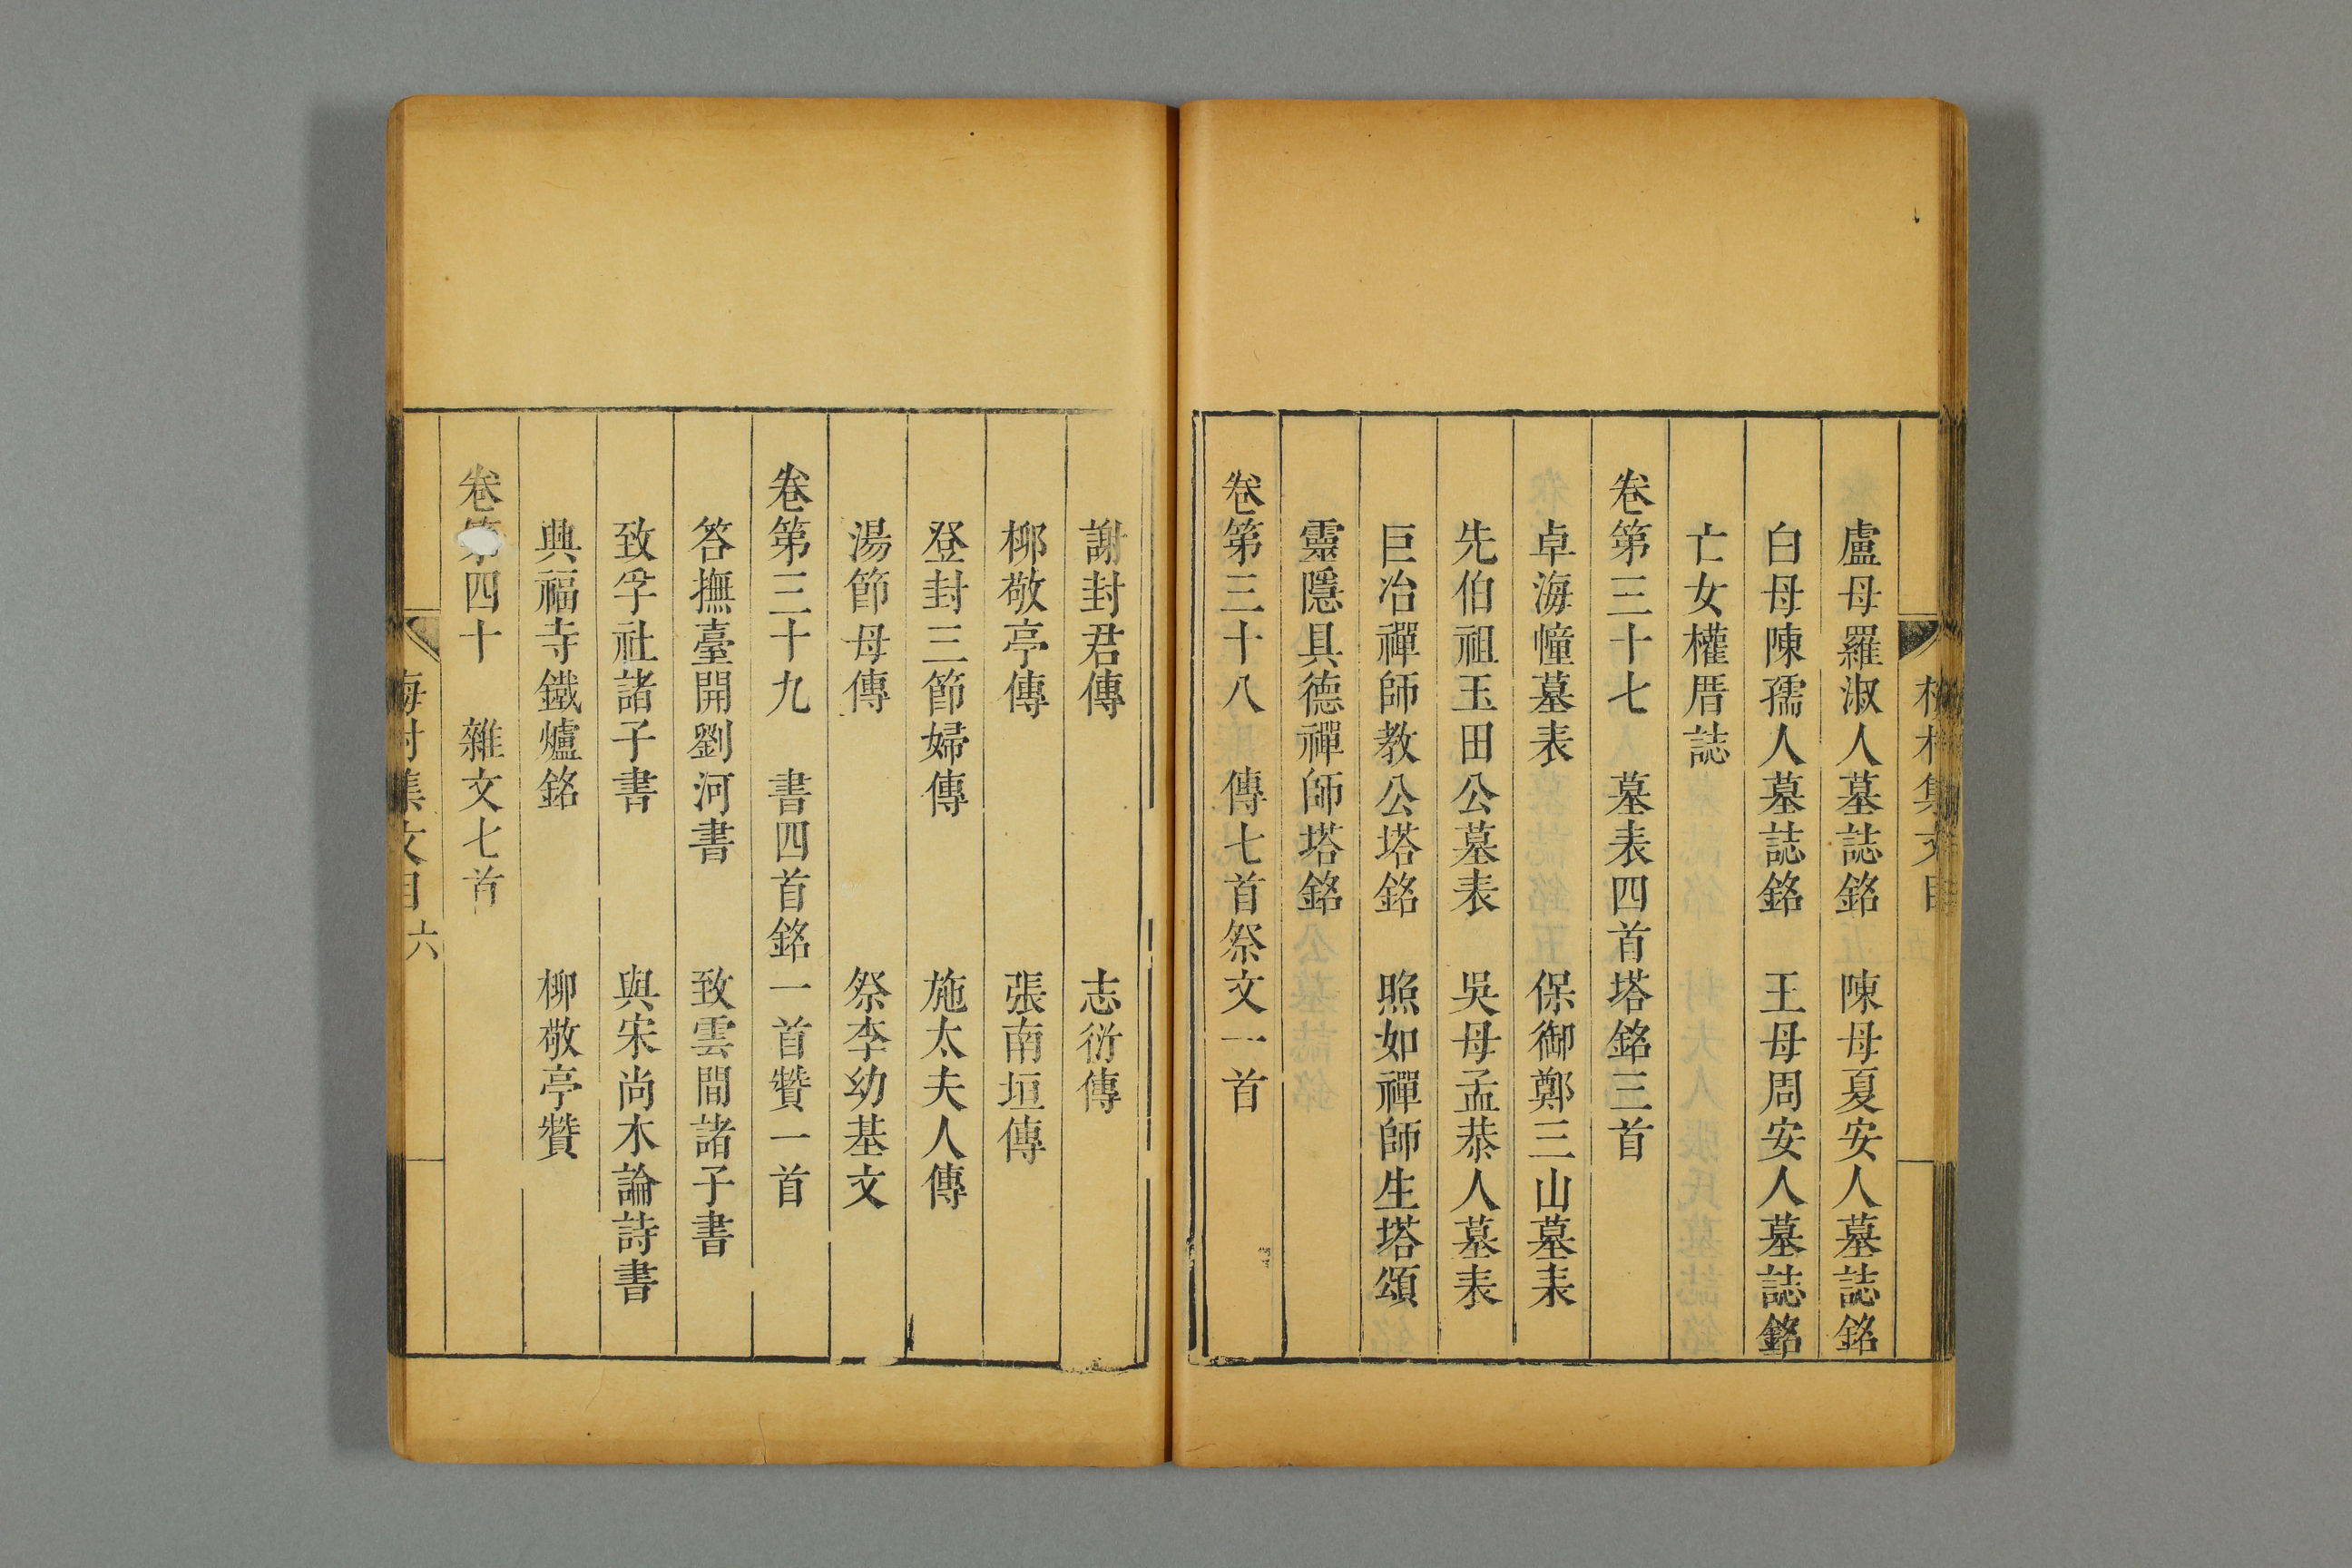 盧母羅淑人墓誌銘 陳母夏安人墓誌銘
白母陳孺人墓誌銘 王母周安人墓誌銘
亡女權厝誌
卷第三十七 墓表四首塔銘三首
卓海幢墓表 保御鄭三山墓表
先伯祖玉田公墓表 吳母孟恭人墓表
巨冶禪師教公塔銘 照如禪師生塔頌
靈隱具德禪師塔銘
卷第三十八 傳七首祭文一首
謝封君傳 志衍傳
柳敬亭傳 張南垣傳
登封三節婦傳 施太夫人傳
湯節母傳 祭李幼基文
卷第三十九 書四首銘一首贊一首
答撫臺開劉河書 致雲間諸子書
致孚社諸子書 與宋尚木論詩書
興福寺鐵爐銘 柳敬亭贊
卷第四十 雜文七首
梅村集文目 六